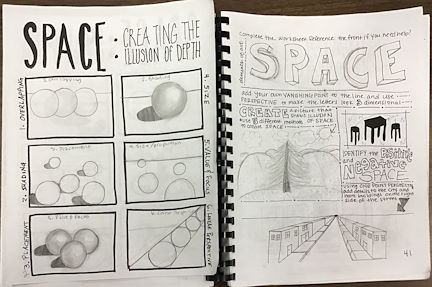 SPACE: CREATING THE
ILLUSION OF DEPTH
1. OVERLAPPING
2. SHADING
3. PLACEMENT
4. SIZE
5. VALUE & FOCUS
6. LINEAR PERSPECTIVE
Complete the worksheet. Reference the front if you need help!
elements of art
SPACE
Add your own VANISHING POINT to the line and use
PERSPECTIVE to make the letters look 3 dimensional
CREATE a picture that
shows ILLUSION
OF SPACE
use 3 different methods
to create SPACE
IDENTIFY the POSITIVE
and NEGATIVE
SPACE
USING ONE POINT PERSPECTIVE
add details to the city and
more buildings on the right
side of the street
41